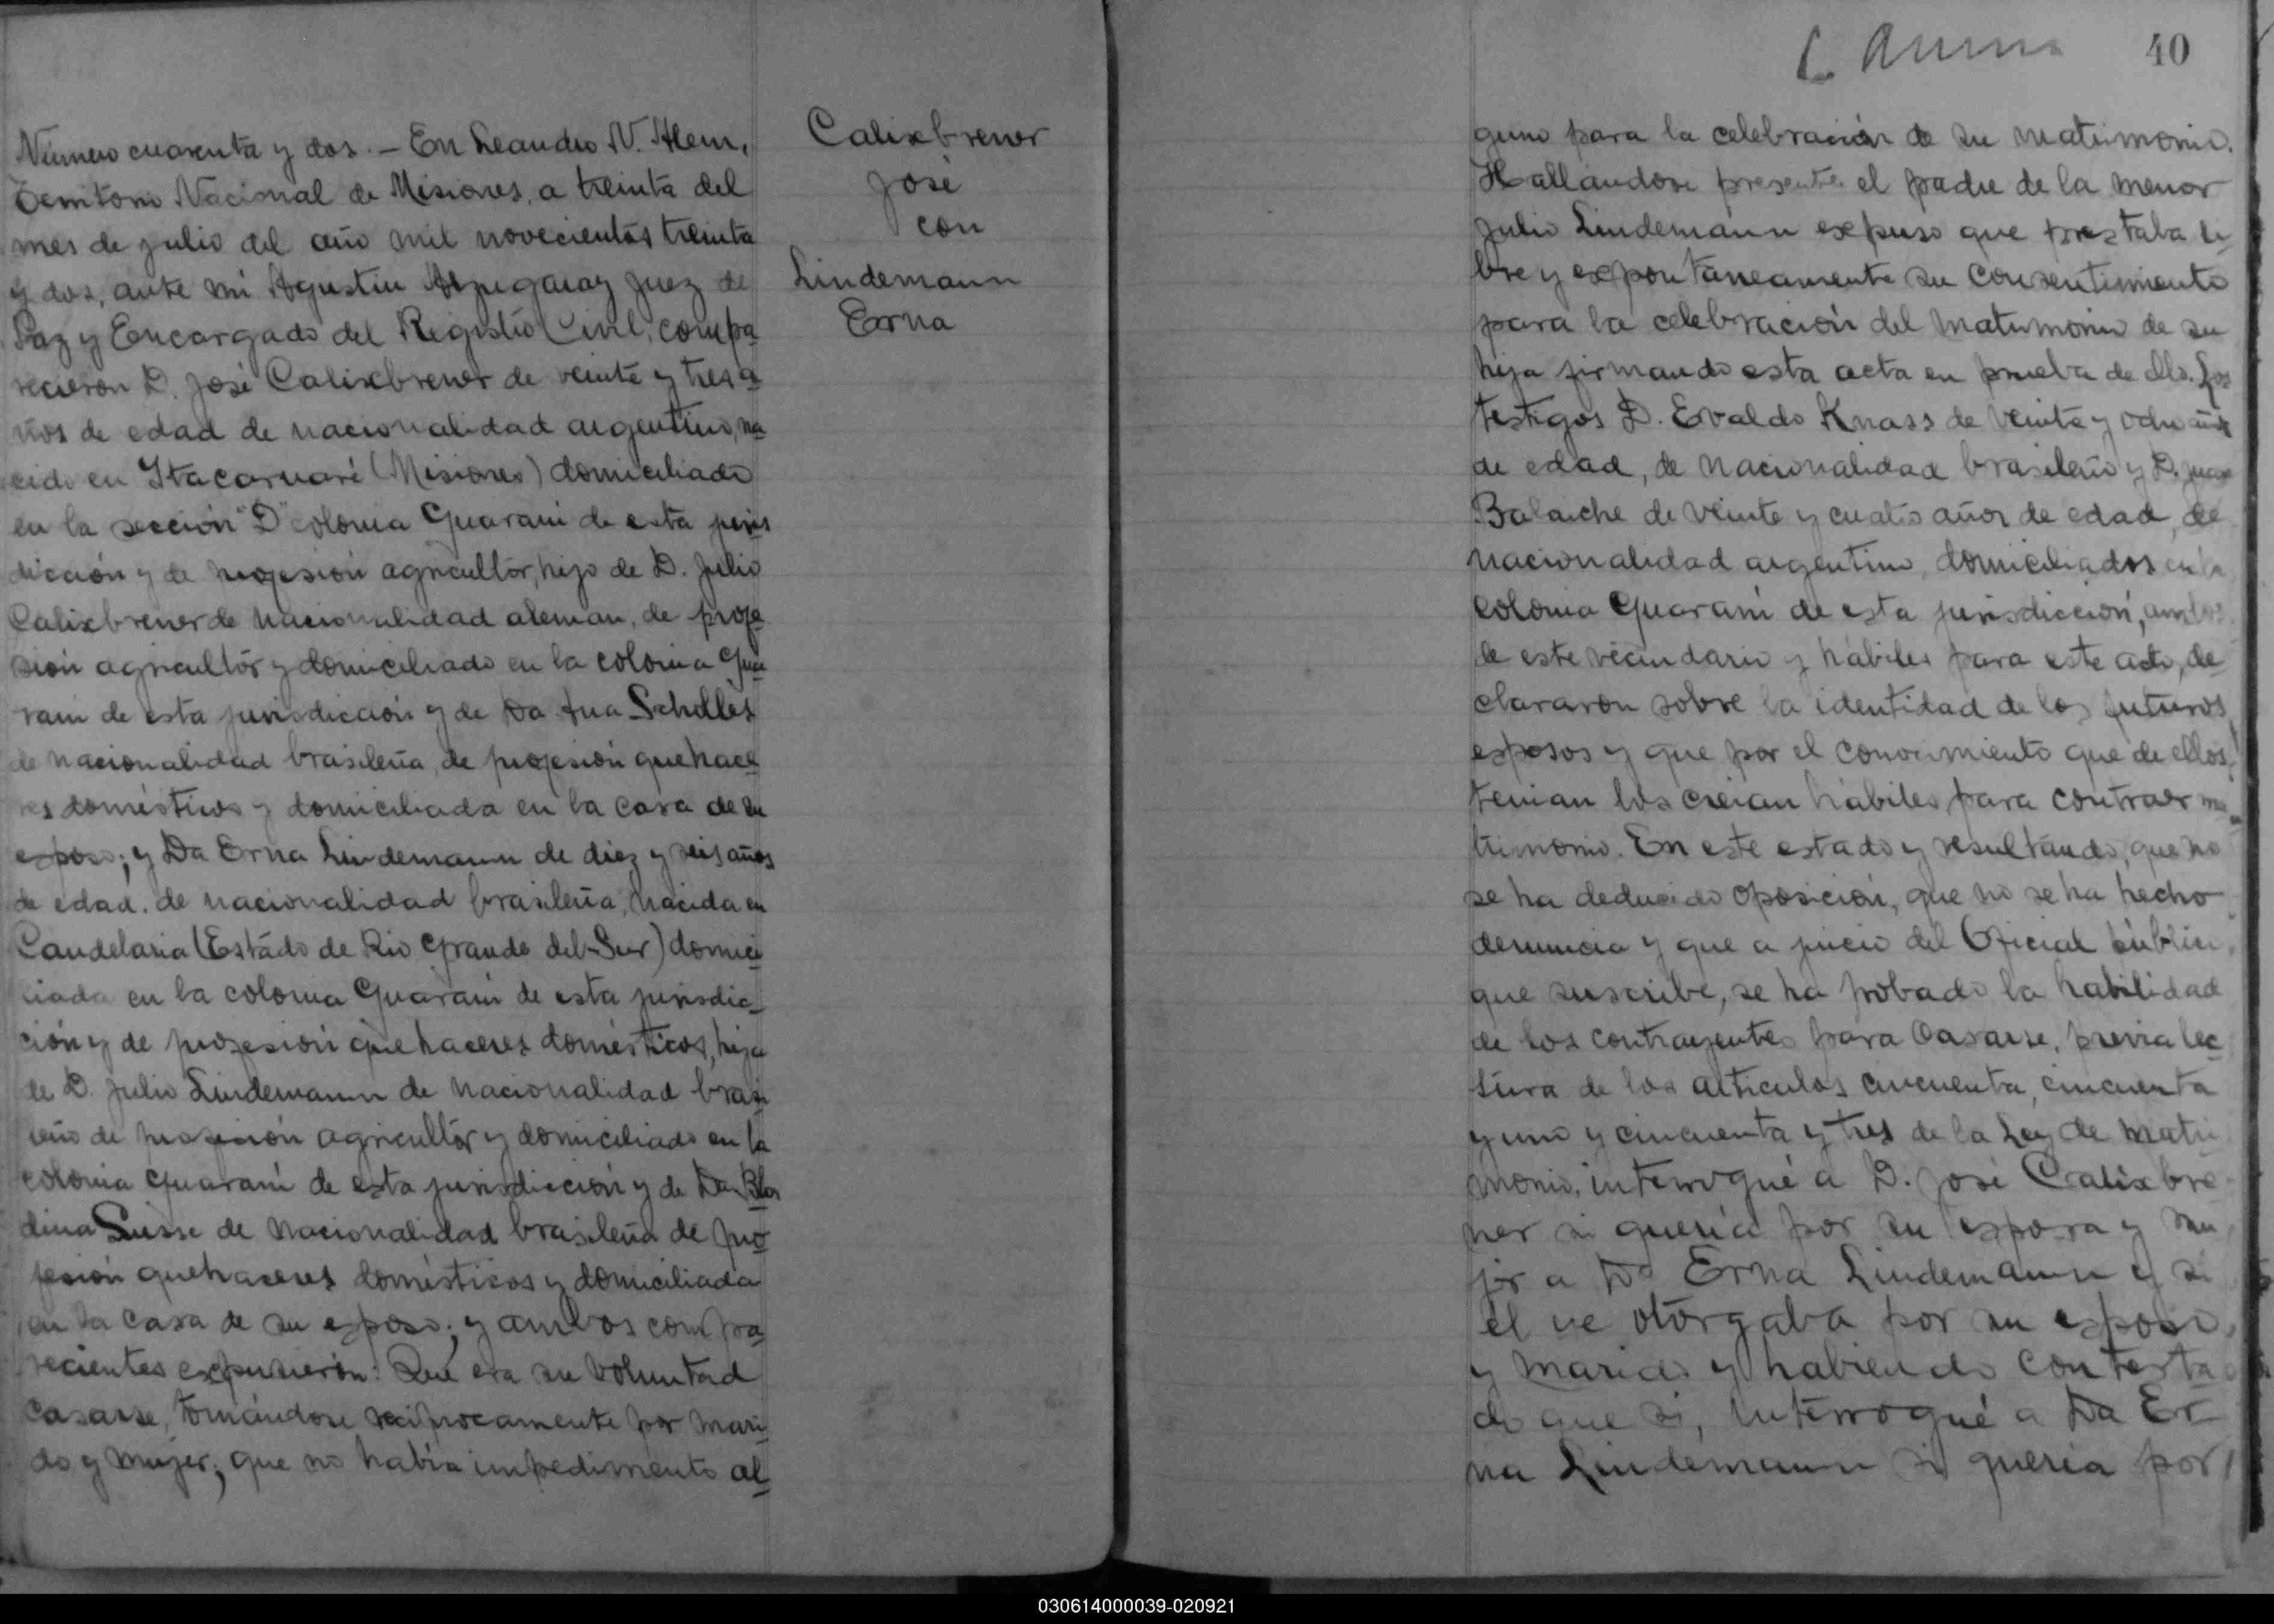 Número cuarenta y dos. — En Leandro N. Alem,
Territorio Nacional de Misiones, a treinta del
mes de julio del año mil novecientos treinta
y dos, ante mi Agustin Azugaray Juez de
Paz y Encargado del Registro Civil, compa
recieron D. José Calixbrener de veinte y tres a
ños de edad de nacionalidad argentino, na
cido en Itacaruaré (Misiones) domiciliado
en la sección "D" colonia Guaraní de esta juris
dicción y de profesión agricultor, hijo de D. Julio
Calixbrener de nacionalidad aleman, de profe
sión agricultór y domiciliado en la colonia Gua
raní de esta jurisdicción y de Da Ana Scholles
de nacionalidad brasileña, de profesión quehace
res domésticos y domiciliada en la casa de su
esposo; y Da Erna Lindemann de diez y seis años
de edad, de nacionalidad brasileña, nacida en
Candelaria (Estádo de Rio Grande del Sur) domici
liada en la colonia Guaraní de esta jurisdic
ción y de profesión quehaceres domésticos, hija
de D. Julio Lindemann de nacionalidad brasi
leño de profesión agricultór y domiciliado en la
colonia Guaraní de esta jurisdicción y de Da Blon
dina Susse de nacionalidad brasileña de pro
fesión quehaceres domésticos y domiciliada
en la casa de su esposo; y ambos compa
recientes expusierón: Que era su voluntad
casarse, tomándose reciprocamente por mari
do y mujer; que no había impedimento al
Calixbrener
José
con
Lindemann
Erna
40
guno para la celebración de su matrimonio.
Hallándose presente el padre de la menor
Julio Lindemann expuso que prestaba li
bre y expontaneamente su consentimiento
para la celebración del matrimonio de su
hija firmando esta acta en prueba de ello. Los
testigos D. Evaldo Knass de veinte y ocho años
de edad, de nacionalidad brasileño y D. Juan
Balaiche de veinte y cuatro años de edad, de
nacionalidad argentino, domiciliados en la
colonia Guaraní de esta jurisdicción, ambos
de este vecindario y hábiles para este acto, de
clararon sobre la identidad de los futuros
esposos y que por el conocimiento que de ellos
tenian los creian hábiles para contraer ma
trimonio. En este estado y resultando, que no
se ha deducido oposición, que no se ha hecho
denuncia y que a juicio del Oficial público
que suscribe, se ha probado la habilidad
de los contrayentes para casarse, previa lec
tura de los artículos cincuenta, cincuenta
y uno y cincuenta y tres de la Ley de Matri
monio, interrogué a D. José Calixbre
ner si quería por su esposa y mu
jer a Da Erna Lindemann y si
él se otorgaba por su esposo
y marido y habiendo contesta
do que si, interrogué a Da Er
na Lindemann si quería por
030614000039-020921